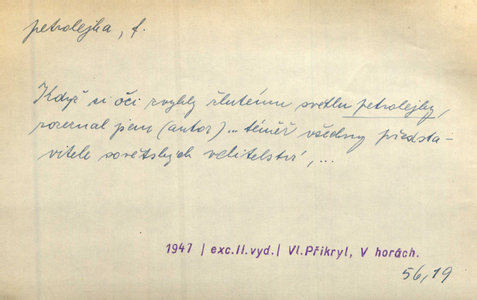 petrolejka, f.
Když si oči zvykly žlutému světlu petrolejky,
rozeznal jsem (autor)... téměř všechny předsta-
vitele sovětských velitelství, ...
1947 | exc. II. vyd. | Vl. Přikryl, V horách.
56,19